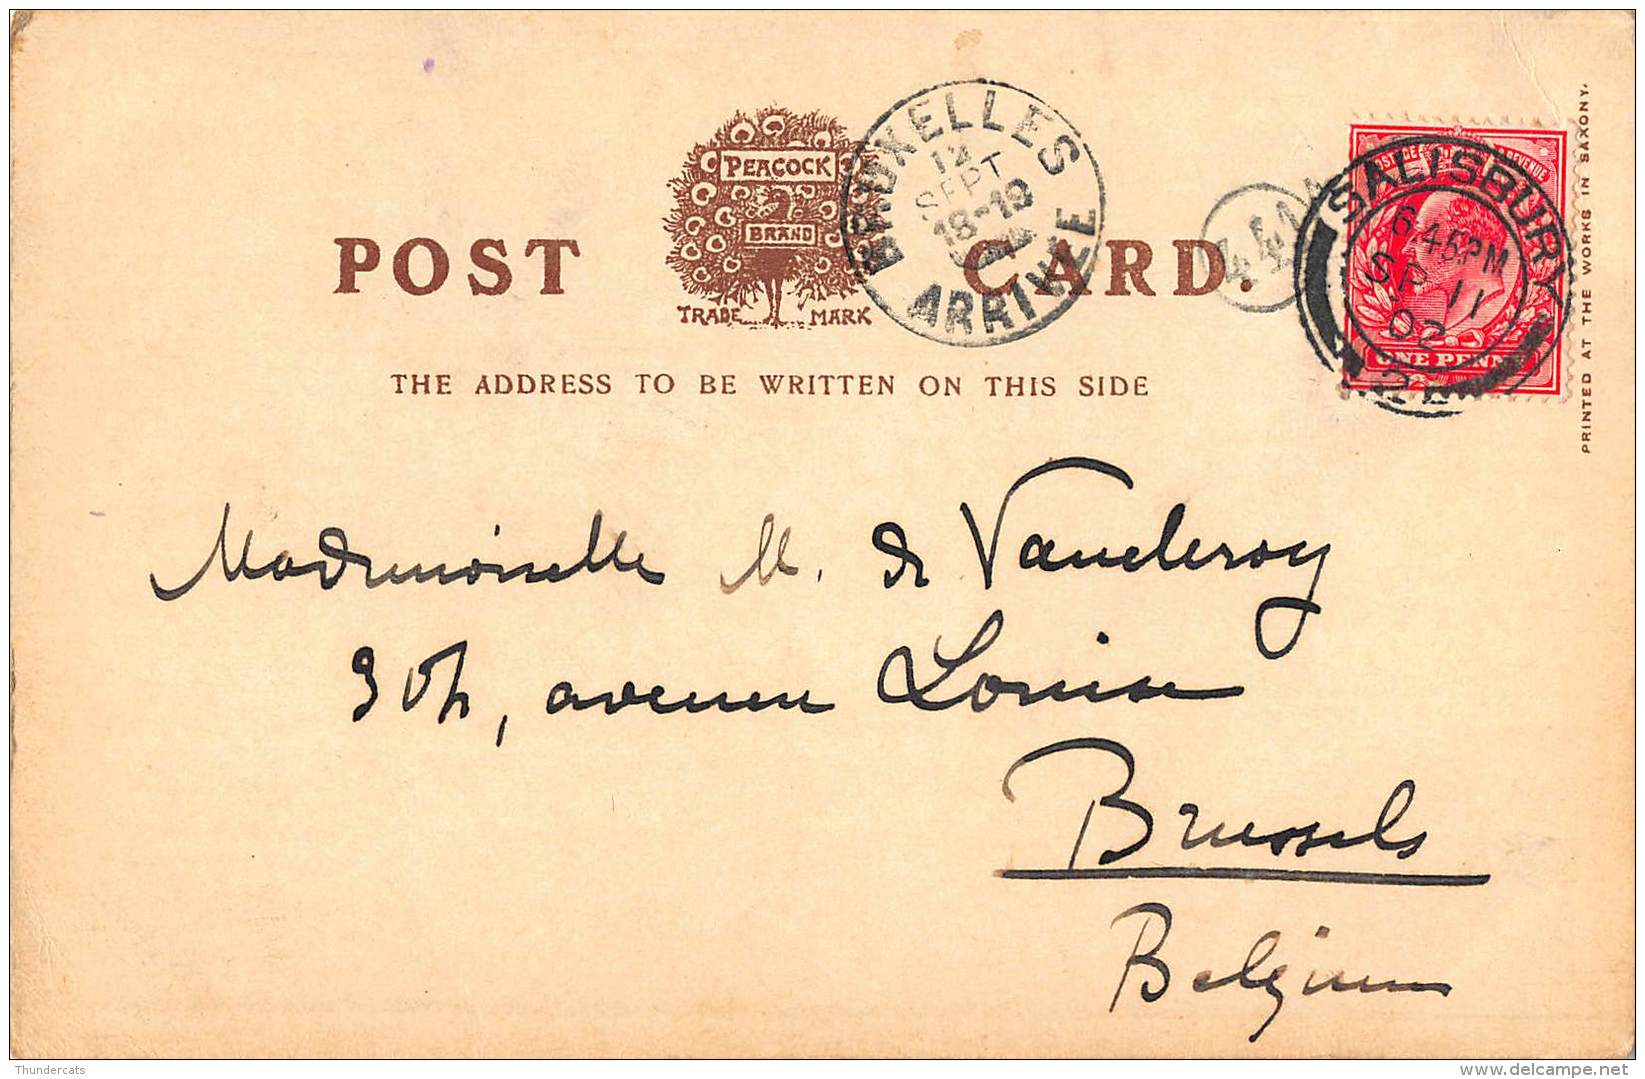 PEACOCK
BRAND
POST CARD.
TRADE MARK
THE ADDRESS TO BE WRITTEN ON THIS SIDE
BRUXELLES
12
SEPT
18-19
ARRIVEE
SALISBURY
6.45PM
SP 11
02
POSTAGE REVENUE
ONE PENNY
PRINTED AT THE WORKS IN SAXONY.
Mademoiselle M. de Vanderoy
avenue Louise
Brussels
Belgium
Thundercats
delcampe.net